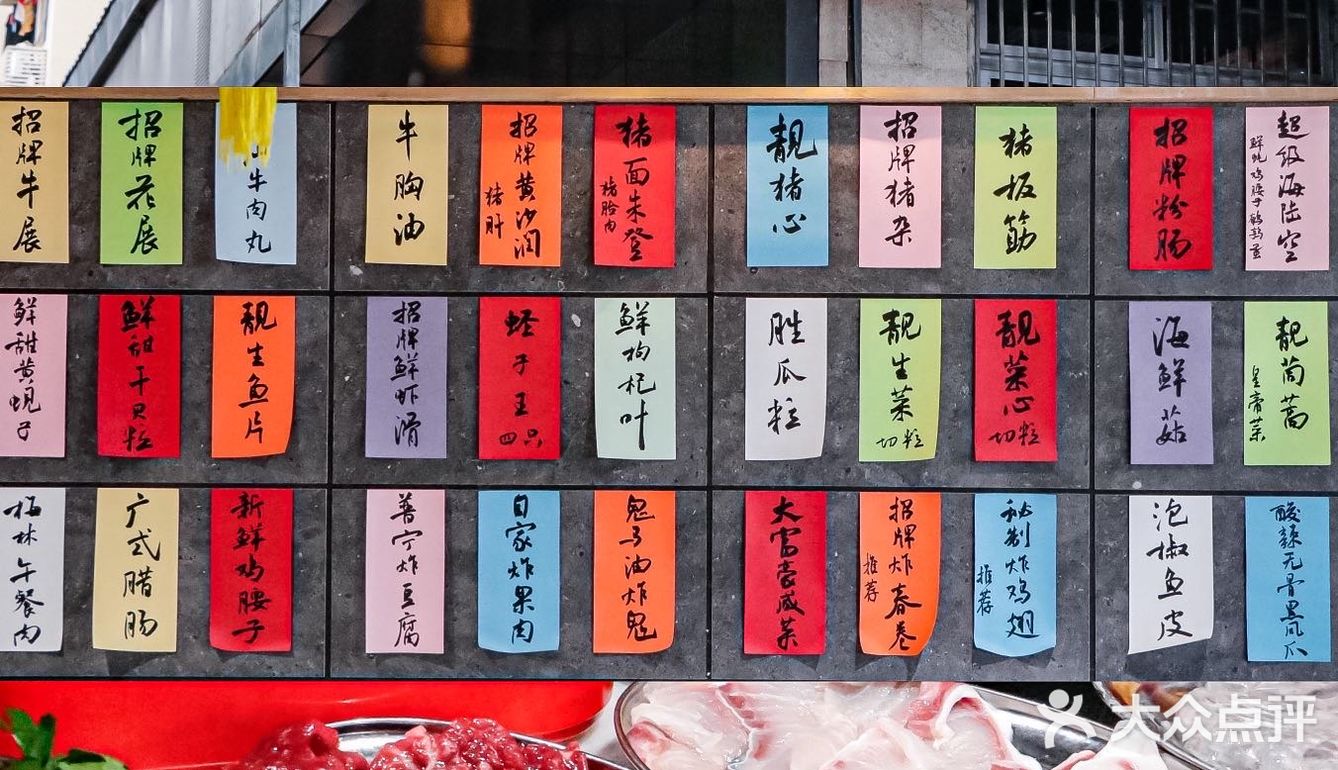 招牌牛展
招牌花展
牛肉丸
牛胸油
招牌黄沙润
猪肝
猪面朱登
猪脸肉
靓猪心
招牌猪杂
猪板筋
招牌粉肠
超级海陆空
鲜虾鸡腰子鹌鹑蛋
鲜甜黄蚬子
鲜甜干贝粒
靓生鱼片
招牌鲜虾滑
蛏子王
四只
鲜枸杞叶
胜瓜粒
靓生菜
切粒
靓菜心
切粒
海鲜菇
靓茼蒿
皇帝菜
梅林午餐肉
广式腊肠
新鲜鸡腰子
普宁炸豆腐
自家炸果肉
鬼子油炸鬼
大富豪咸菜
招牌炸春卷
推荐
秘制炸鸡翅
推荐
泡椒鱼皮
酸辣无骨凤爪
大众点评